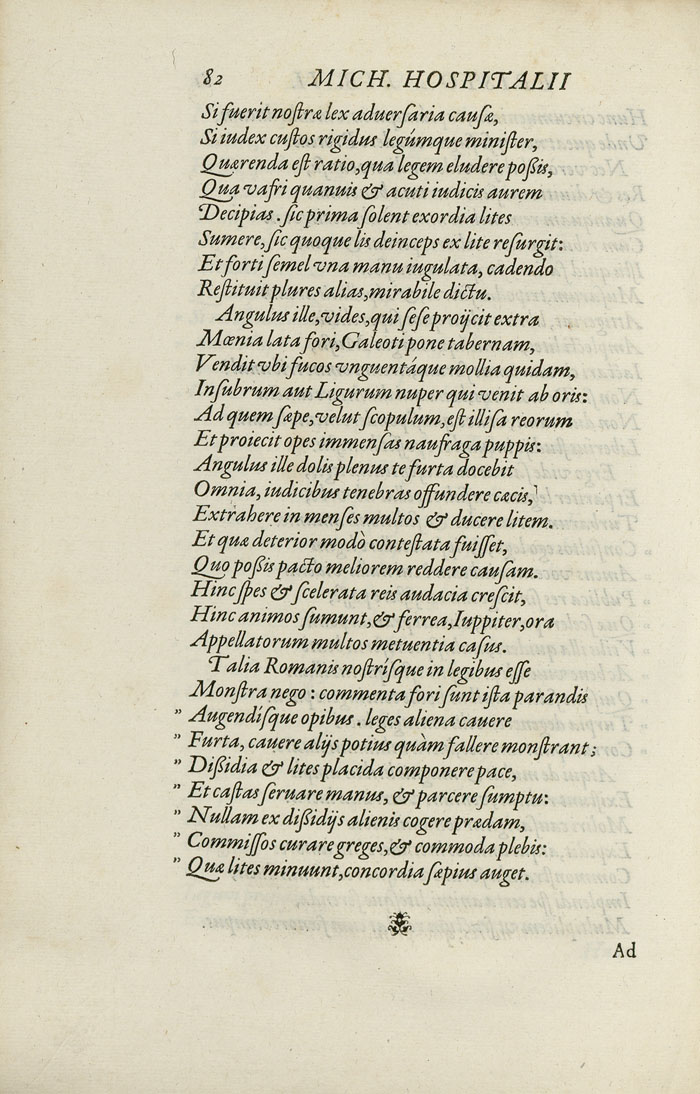 82 MICH. HOSPITALII
Si fuerit nostræ lex aduersaria causæ,
Si iudex custos rigidus legúmque minister,
Quærenda est ratio, qua legem eludere poßis,
Qua vafri quanuis & acuti iudicis aurem
Decipias . sic prima solent exordia lites
Sumere, sic quoque lis deinceps ex lite resurgit:
Et forti semel vna manu iugulata, cadendo
Restituit plures alias, mirabile dictu.
Angulus ille, vides, qui sese proijcit extra
Mœnia lata fori, Galeoti pone tabernam,
Vendit vbi fucos vnguentáque mollia quidam,
Insubrum aut Ligurum nuper qui venit ab oris:
Ad quem sæpe, velut scopulum, est illisa reorum
Et proiecit opes immensas naufraga puppis:
Angulus ille dolis plenus te furta docebit
Omnia, iudicibus tenebras offundere cæcis,
Extrahere in menses multos & ducere litem.
Et quæ deterior modò contestata fuisset,
Quo poßis pacto meliorem reddere causam.
Hinc spes & scelerata reis audacia crescit,
Hinc animos sumunt, & ferrea, Iuppiter, ora
Appellatorum multos metuentia casus.
Talia Romanis nostrísque in legibus esse
Monstra nego : commenta fori sunt ista parandis
" Augendísque opibus . leges aliena cauere
" Furta, cauere alijs potius quàm fallere monstrant;
" Dißidia & lites placida componere pace,
" Et castas seruare manus, & parcere sumptu:
" Nullam ex dißidijs alienis cogere prædam,
" Commissos curare greges, & commoda plebis:
" Quæ lites minuunt, concordia sæpius auget.
Ad